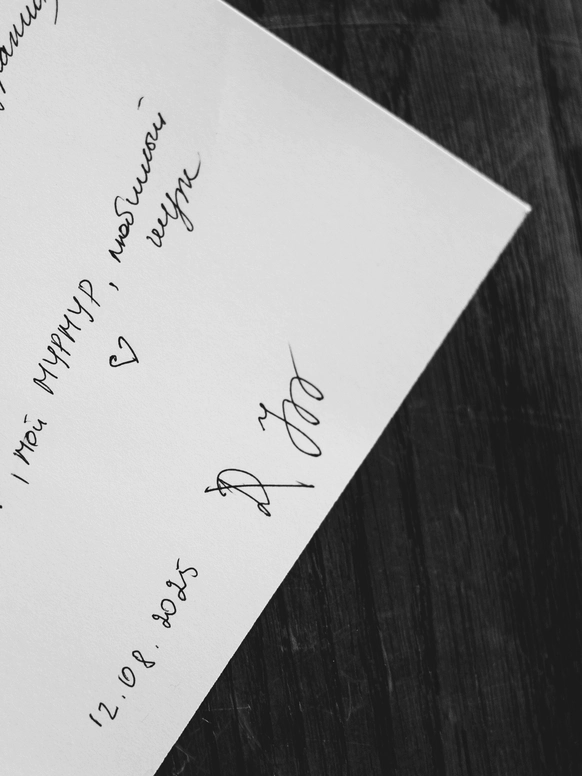 , мой МУРМУР, любимый
муж
♡
12.08.2025